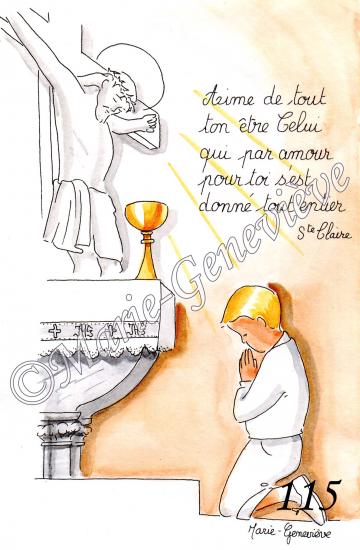 Aime de tout
ton être Celui
qui par amour
pour toi s'est
donné tout entier
Ste Claire
©Marie-Geneviève
115
Marie-Geneviève